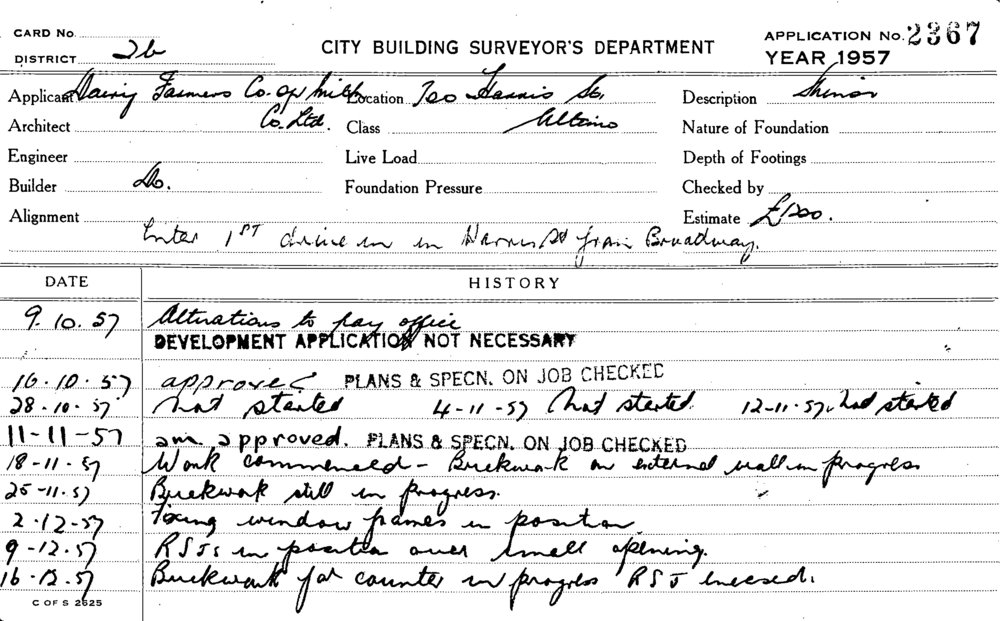 CARD No.
DISTRICT 2b
CITY BUILDING SURVEYOR'S DEPARTMENT
APPLICATION No. 2367
YEAR 1957
Applicant Dairy Farmers Co. op Milk Co. Ltd.
Location Harris St.
Description
Architect
Class Ultimo
Nature of Foundation
Engineer
Live Load
Depth of Footings
Builder Do.
Foundation Pressure
Checked by
Alignment
Estimate
Enter 1ST drive in in Harris St from Broadway.
DATE
HISTORY
9.10.57 Alterations to pay office
DEVELOPMENT APPLICATION NOT NECESSARY
16.10.57 approved PLANS & SPECN. ON JOB CHECKED
28.10.57 Not started 4-11-57 Not started. 12-11-57. Not started
11-11-57 am. approved. PLANS & SPECN. ON JOB CHECKED
18-11-57 Work commenced - Brickwork on external wall in progress
25-11-57 Brickwork still in progress.
2-12-57 Fixing window frames in position
9-12-57 RSJs in position over small opening.
16-12-57 Brickwork for counter in progress RSJ encased.
C OF S 2625